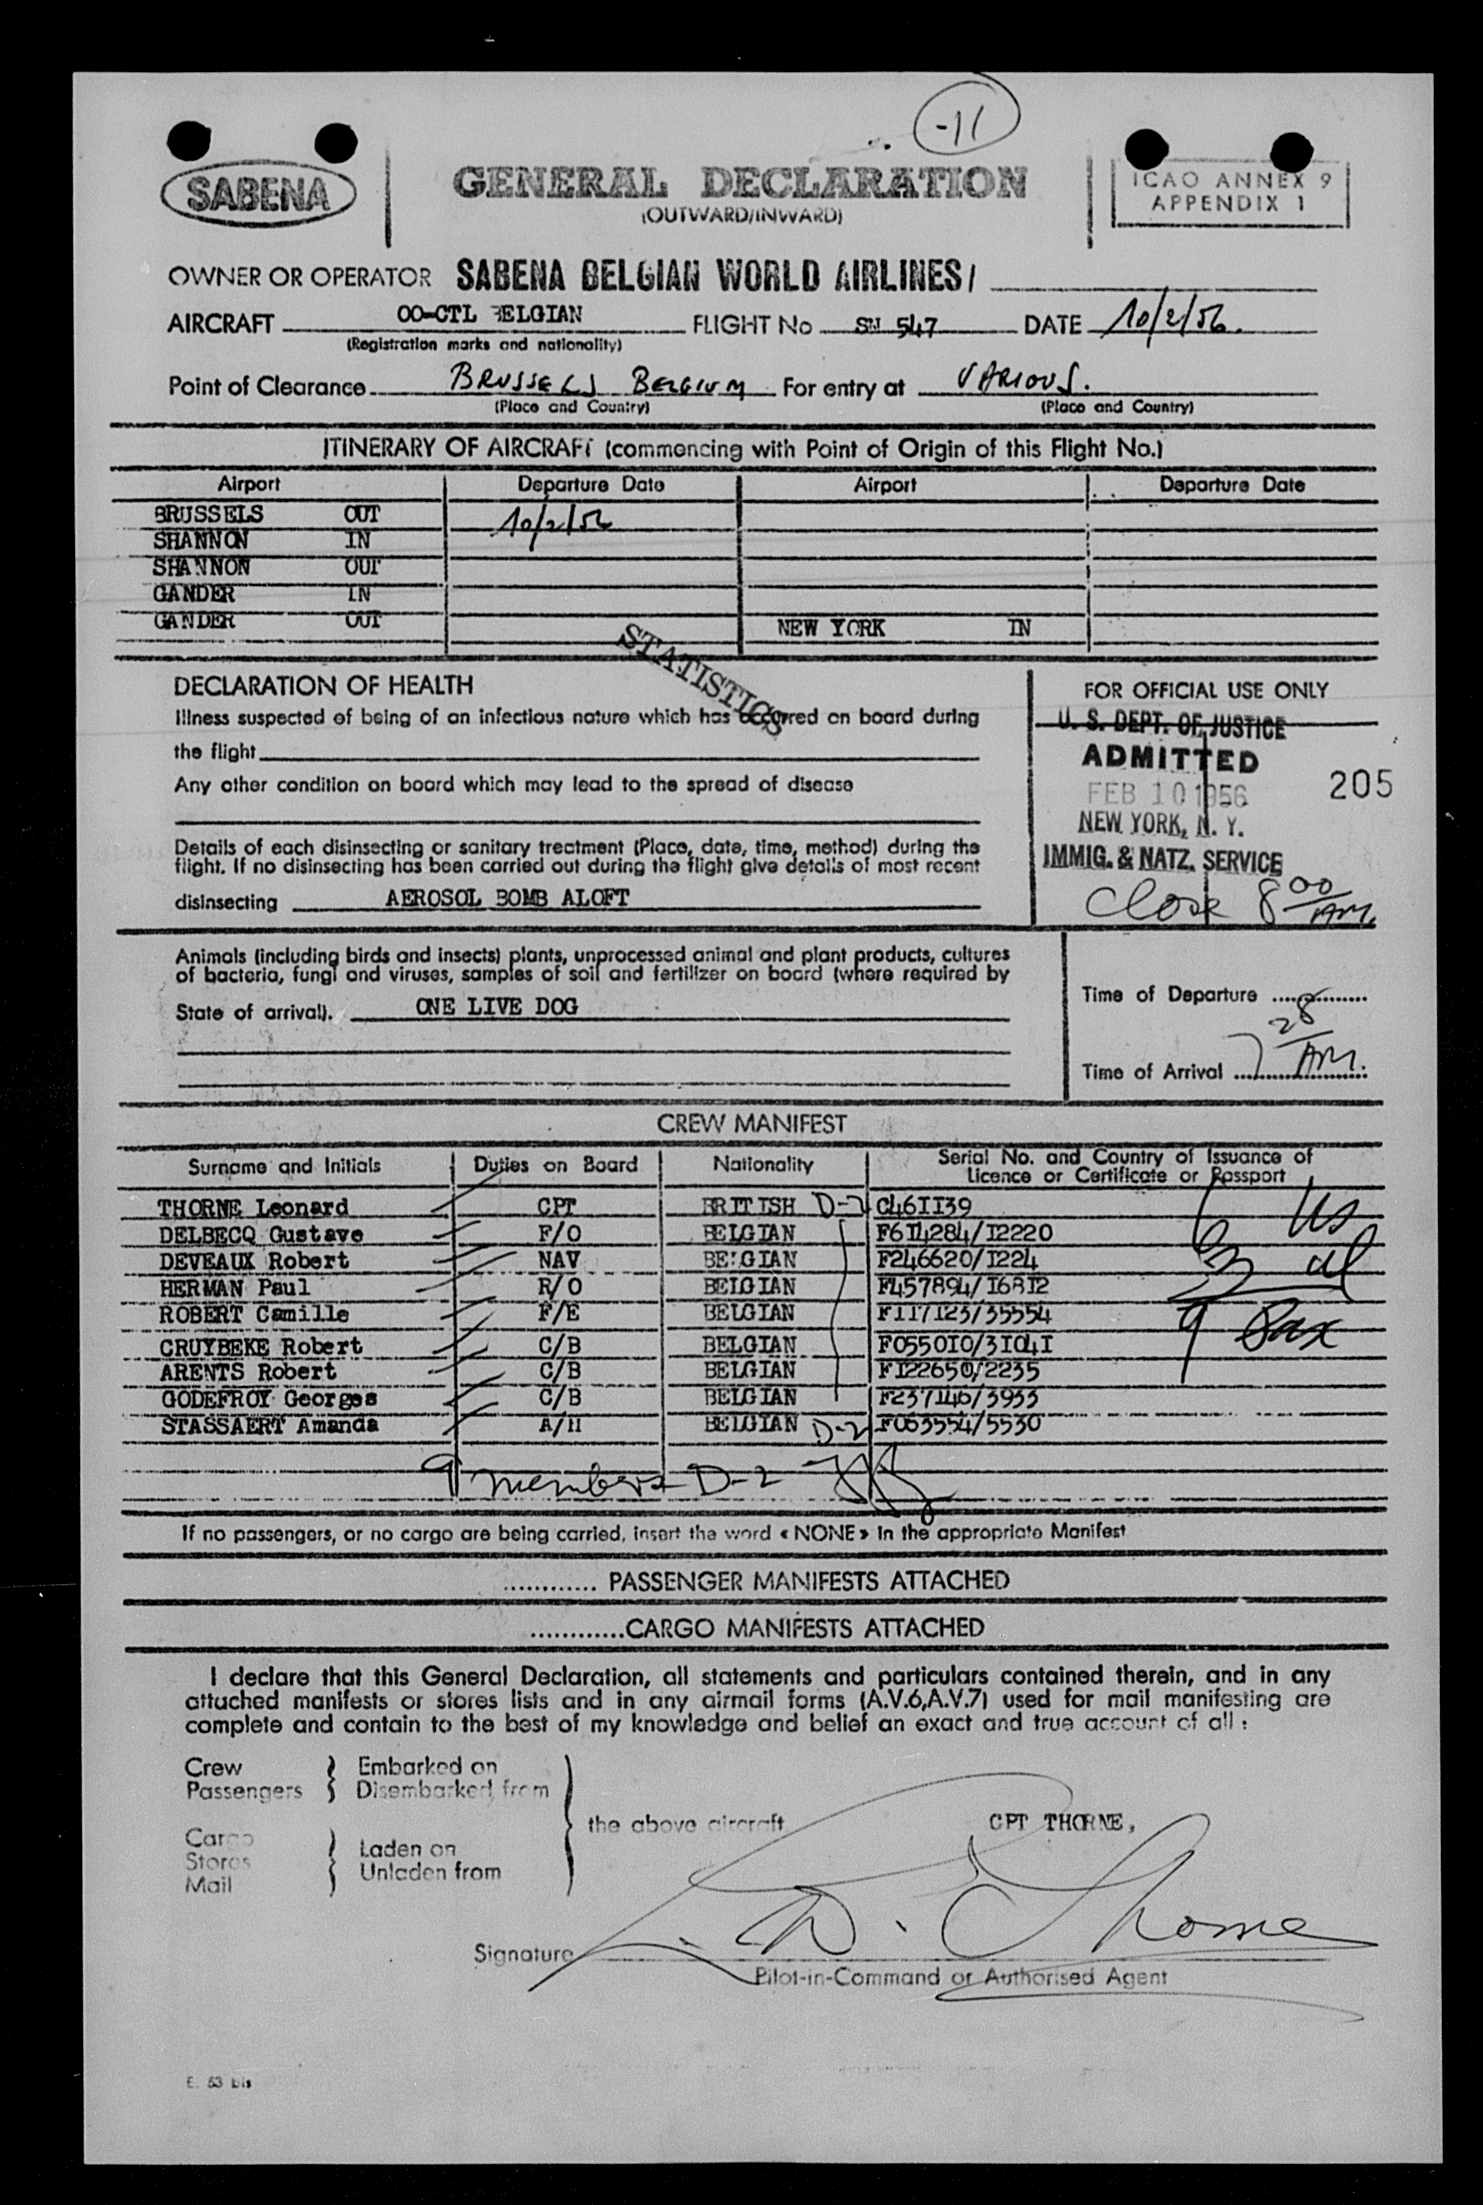 -11
SABENA
GENERAL DECLARATION
(OUTWARD/INWARD)
ICAO ANNEX 9
APPENDIX 1
OWNER OR OPERATOR SABENA BELGIAN WORLD AIRLINES/
AIRCRAFT OO-CTL BELGIAN FLIGHT No SN 547 DATE 10/2/56.
(Registration marks and nationality)
Point of Clearance BRUSSELS BELGIUM For entry at VARIOUS.
(Place and Country) (Place and Country)
ITINERARY OF AIRCRAFT (commencing with Point of Origin of this Flight No.)
Airport Departure Date Airport Departure Date
BRUSSELS OUT 10/2/56
SHANNON IN
SHANNON OUT
GANDER IN
GANDER OUT NEW YORK IN
STATISTICS
DECLARATION OF HEALTH
Illness suspected of being of an infectious nature which has occurred on board during
the flight
Any other condition on board which may lead to the spread of disease
Details of each disinsecting or sanitary treatment (Place, date, time, method) during the
flight. If no disinsecting has been carried out during the flight give details of most recent
disinsecting AEROSOL BOMB ALOFT
FOR OFFICIAL USE ONLY
U. S. DEPT. OF JUSTICE
ADMITTED
FEB 10 1956
205
NEW YORK, N. Y.
IMMIG. & NATZ. SERVICE
Close 8 00 AM.
Animals (including birds and insects) plants, unprocessed animal and plant products, cultures
of bacteria, fungi and viruses, samples of soil and fertilizer on board (where required by
State of arrival). ONE LIVE DOG
Time of Departure
Time of Arrival 7 28 AM.
CREW MANIFEST
Surname and Initials Duties on Board Nationality Serial No. and Country of Issuance of
Licence or Certificate or Passport
THORNE Leonard CPT BRITISH D-2 C46II39
DELBECQ Gustave F/O BELGIAN F6I4284/I2220
DEVEAUX Robert NAV BELGIAN F246620/I224
HERMAN Paul R/O BELGIAN F457894/I68I2
ROBERT Camille F/E BELGIAN F117123/35554
CRUYBEKE Robert C/B BELGIAN F0550I0/3I04I
ARENTS Robert C/B BELGIAN FI22650/2235
GODEFROY Georges C/B BELGIAN F237146/3933
STASSAERT Amanda A/H BELGIAN D-2 F063554/5530
US
3 al
9 Pax
9 members D-2
If no passengers, or no cargo are being carried, insert the word « NONE » in the appropriate Manifest
............ PASSENGER MANIFESTS ATTACHED
............CARGO MANIFESTS ATTACHED
I declare that this General Declaration, all statements and particulars contained therein, and in any
attached manifests or stores lists and in any airmail forms (A.V.6,A.V.7) used for mail manifesting are
complete and contain to the best of my knowledge and belief an exact and true account of all :
Crew Embarked on
Passengers Disembarked from
the above aircraft
Cargo
Stores Laden on
Mail Unladen from
CPT THORNE,
L. D. Thorne
Signature
Pilot-in-Command or Authorised Agent
E. 53 bis